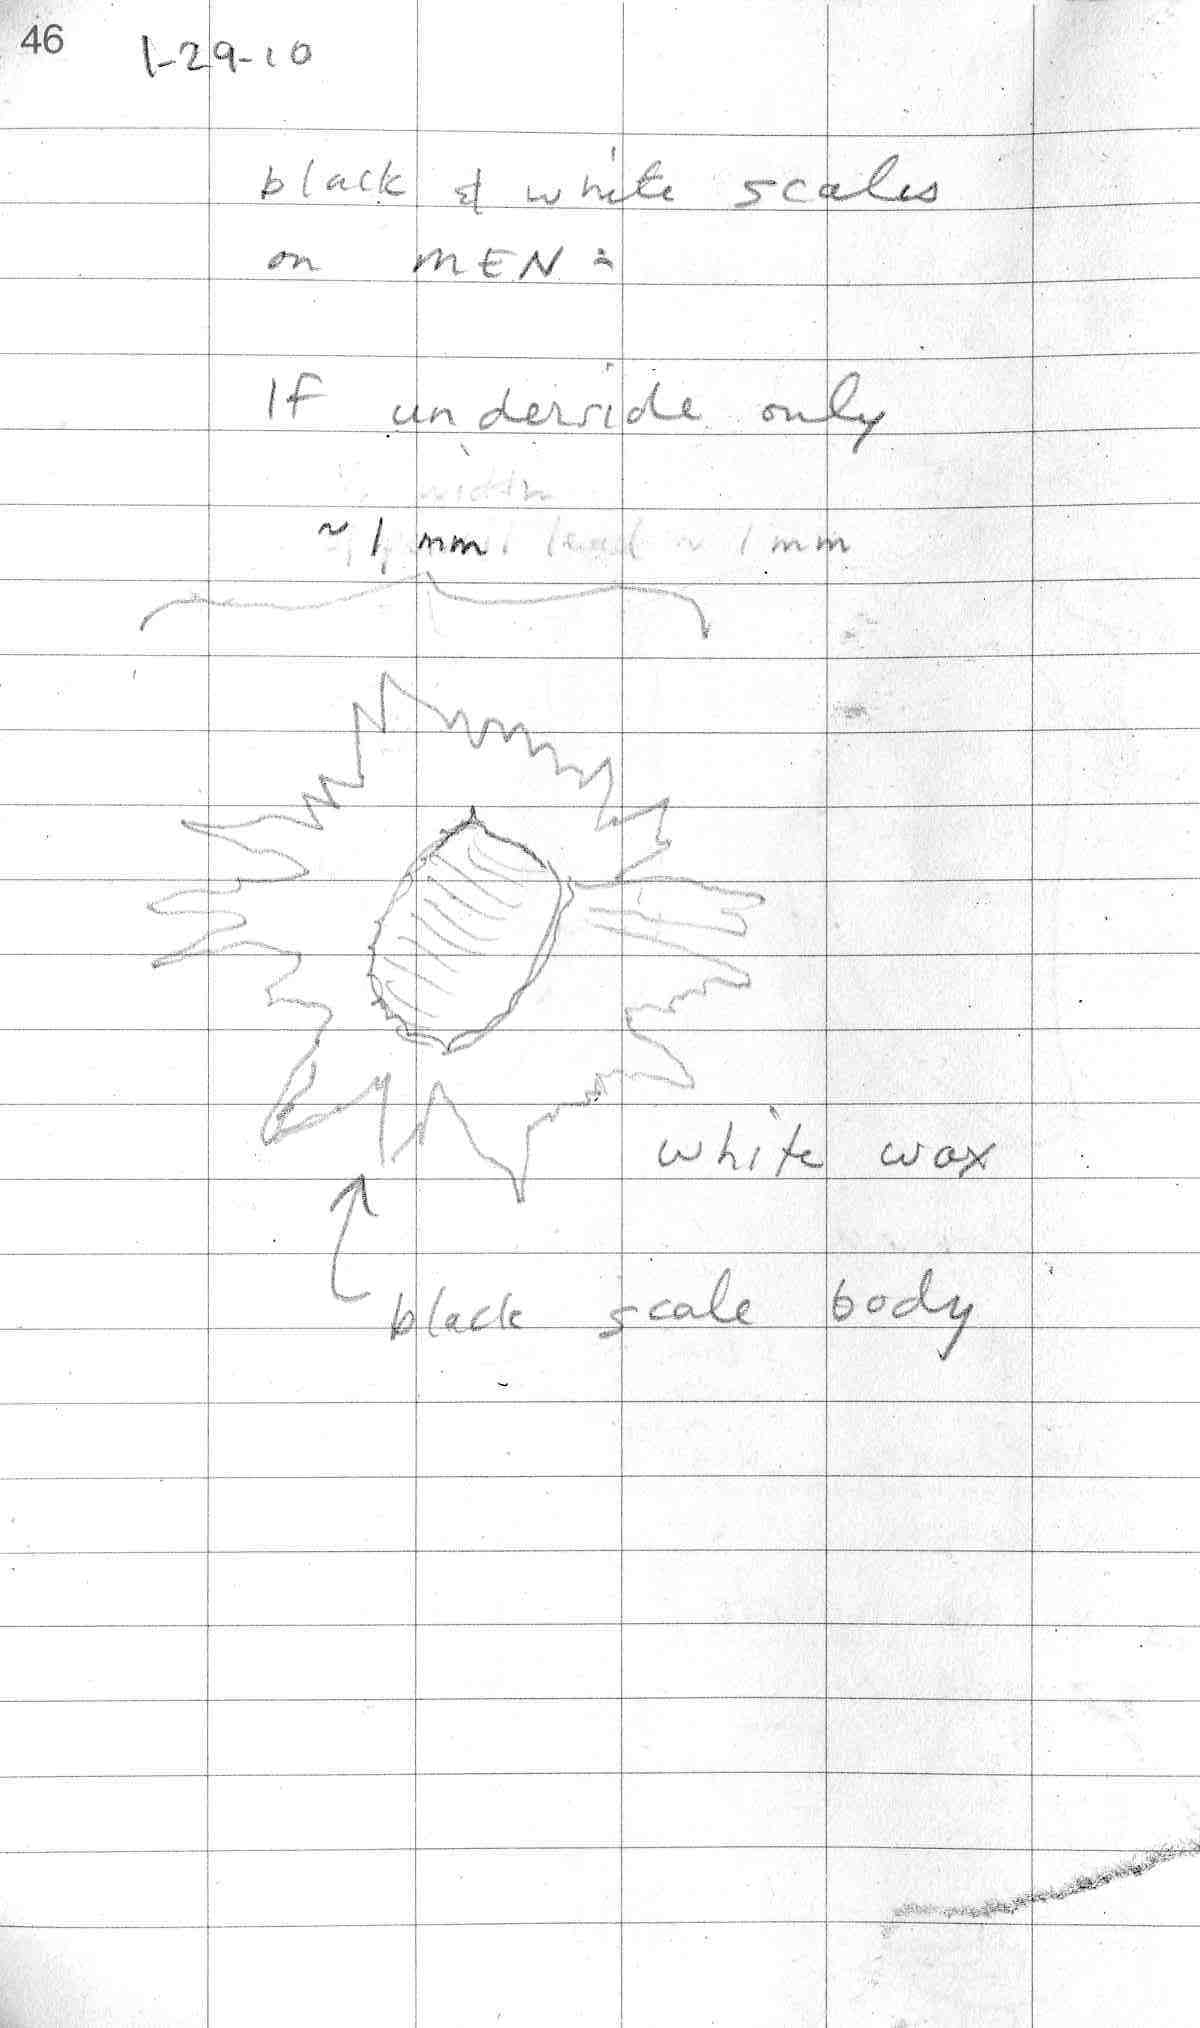 46
1-29-10
black & white scales
on MEN:
lf underside only
width
~ 1 mm ~ 1 mm
white wax
black scale body